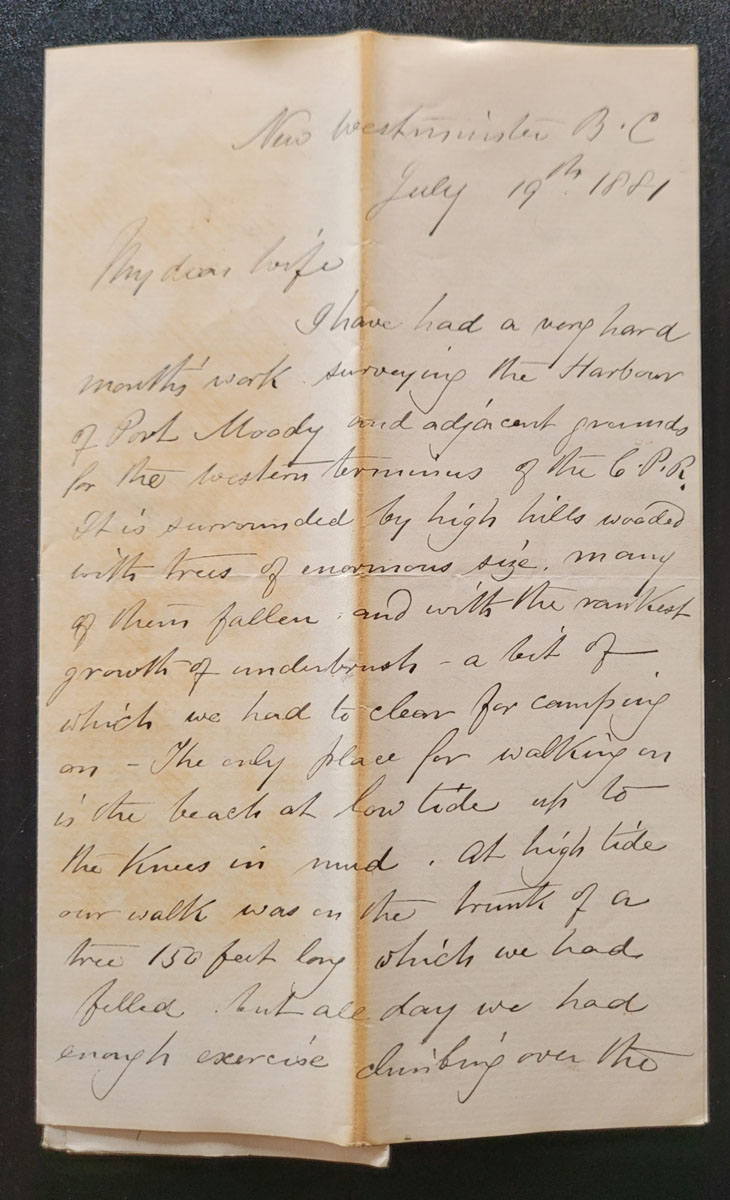 New Westminster B.C
July 19th 1881
My dear Wife
I have had a very hard
month's work surveying the Harbour
of Port Moody and adjacent grounds
for the western terminus of the C.P.R.
It is surrounded by high hills wooded
with trees of enormous size, many
of them fallen, and with the rankest
growth of underbrush - a bit of
which we had to clear for camping
on - The only place for walking on
is the beach at low tide up to
the Knees in mud. At high tide
our walk was on the trunk of a
tree 150 feet long which we had
felled. but all day we had
enough exercise climbing over the